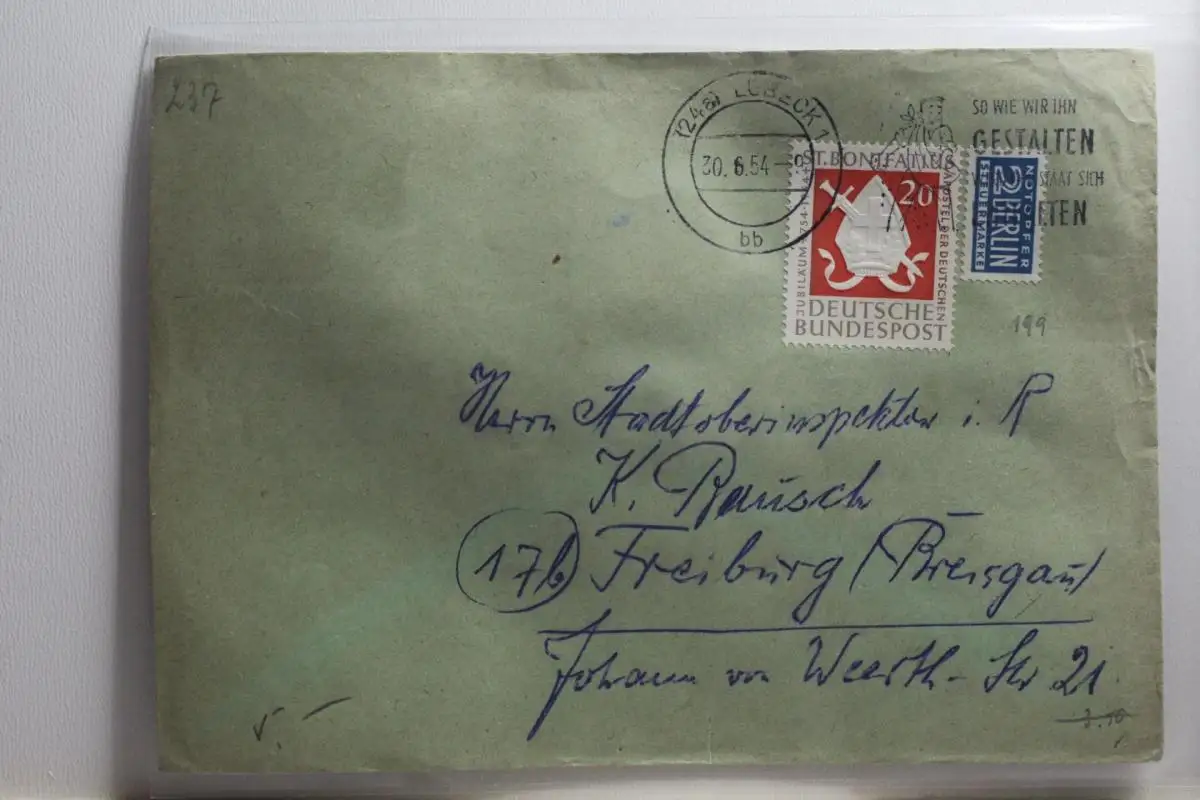 237
(24a) LÜBECK 1
30.6.54-9
bb
SO WIE WIR IHN
GESTALTEN
STAAT SICH
ETEN
ST. BONIFATIUS
APOSTEL DER DEUTSCHEN
JUBILÄUM 754
20
DEUTSCHE
BUNDESPOST
NOTOPFER
2 BERLIN
STEUERMARKE
199
Herrn Stadtoberinspektor i. R
K. Rausch
17b Freiburg / Breisgau
Johann von Weerth-Str 21
3.50